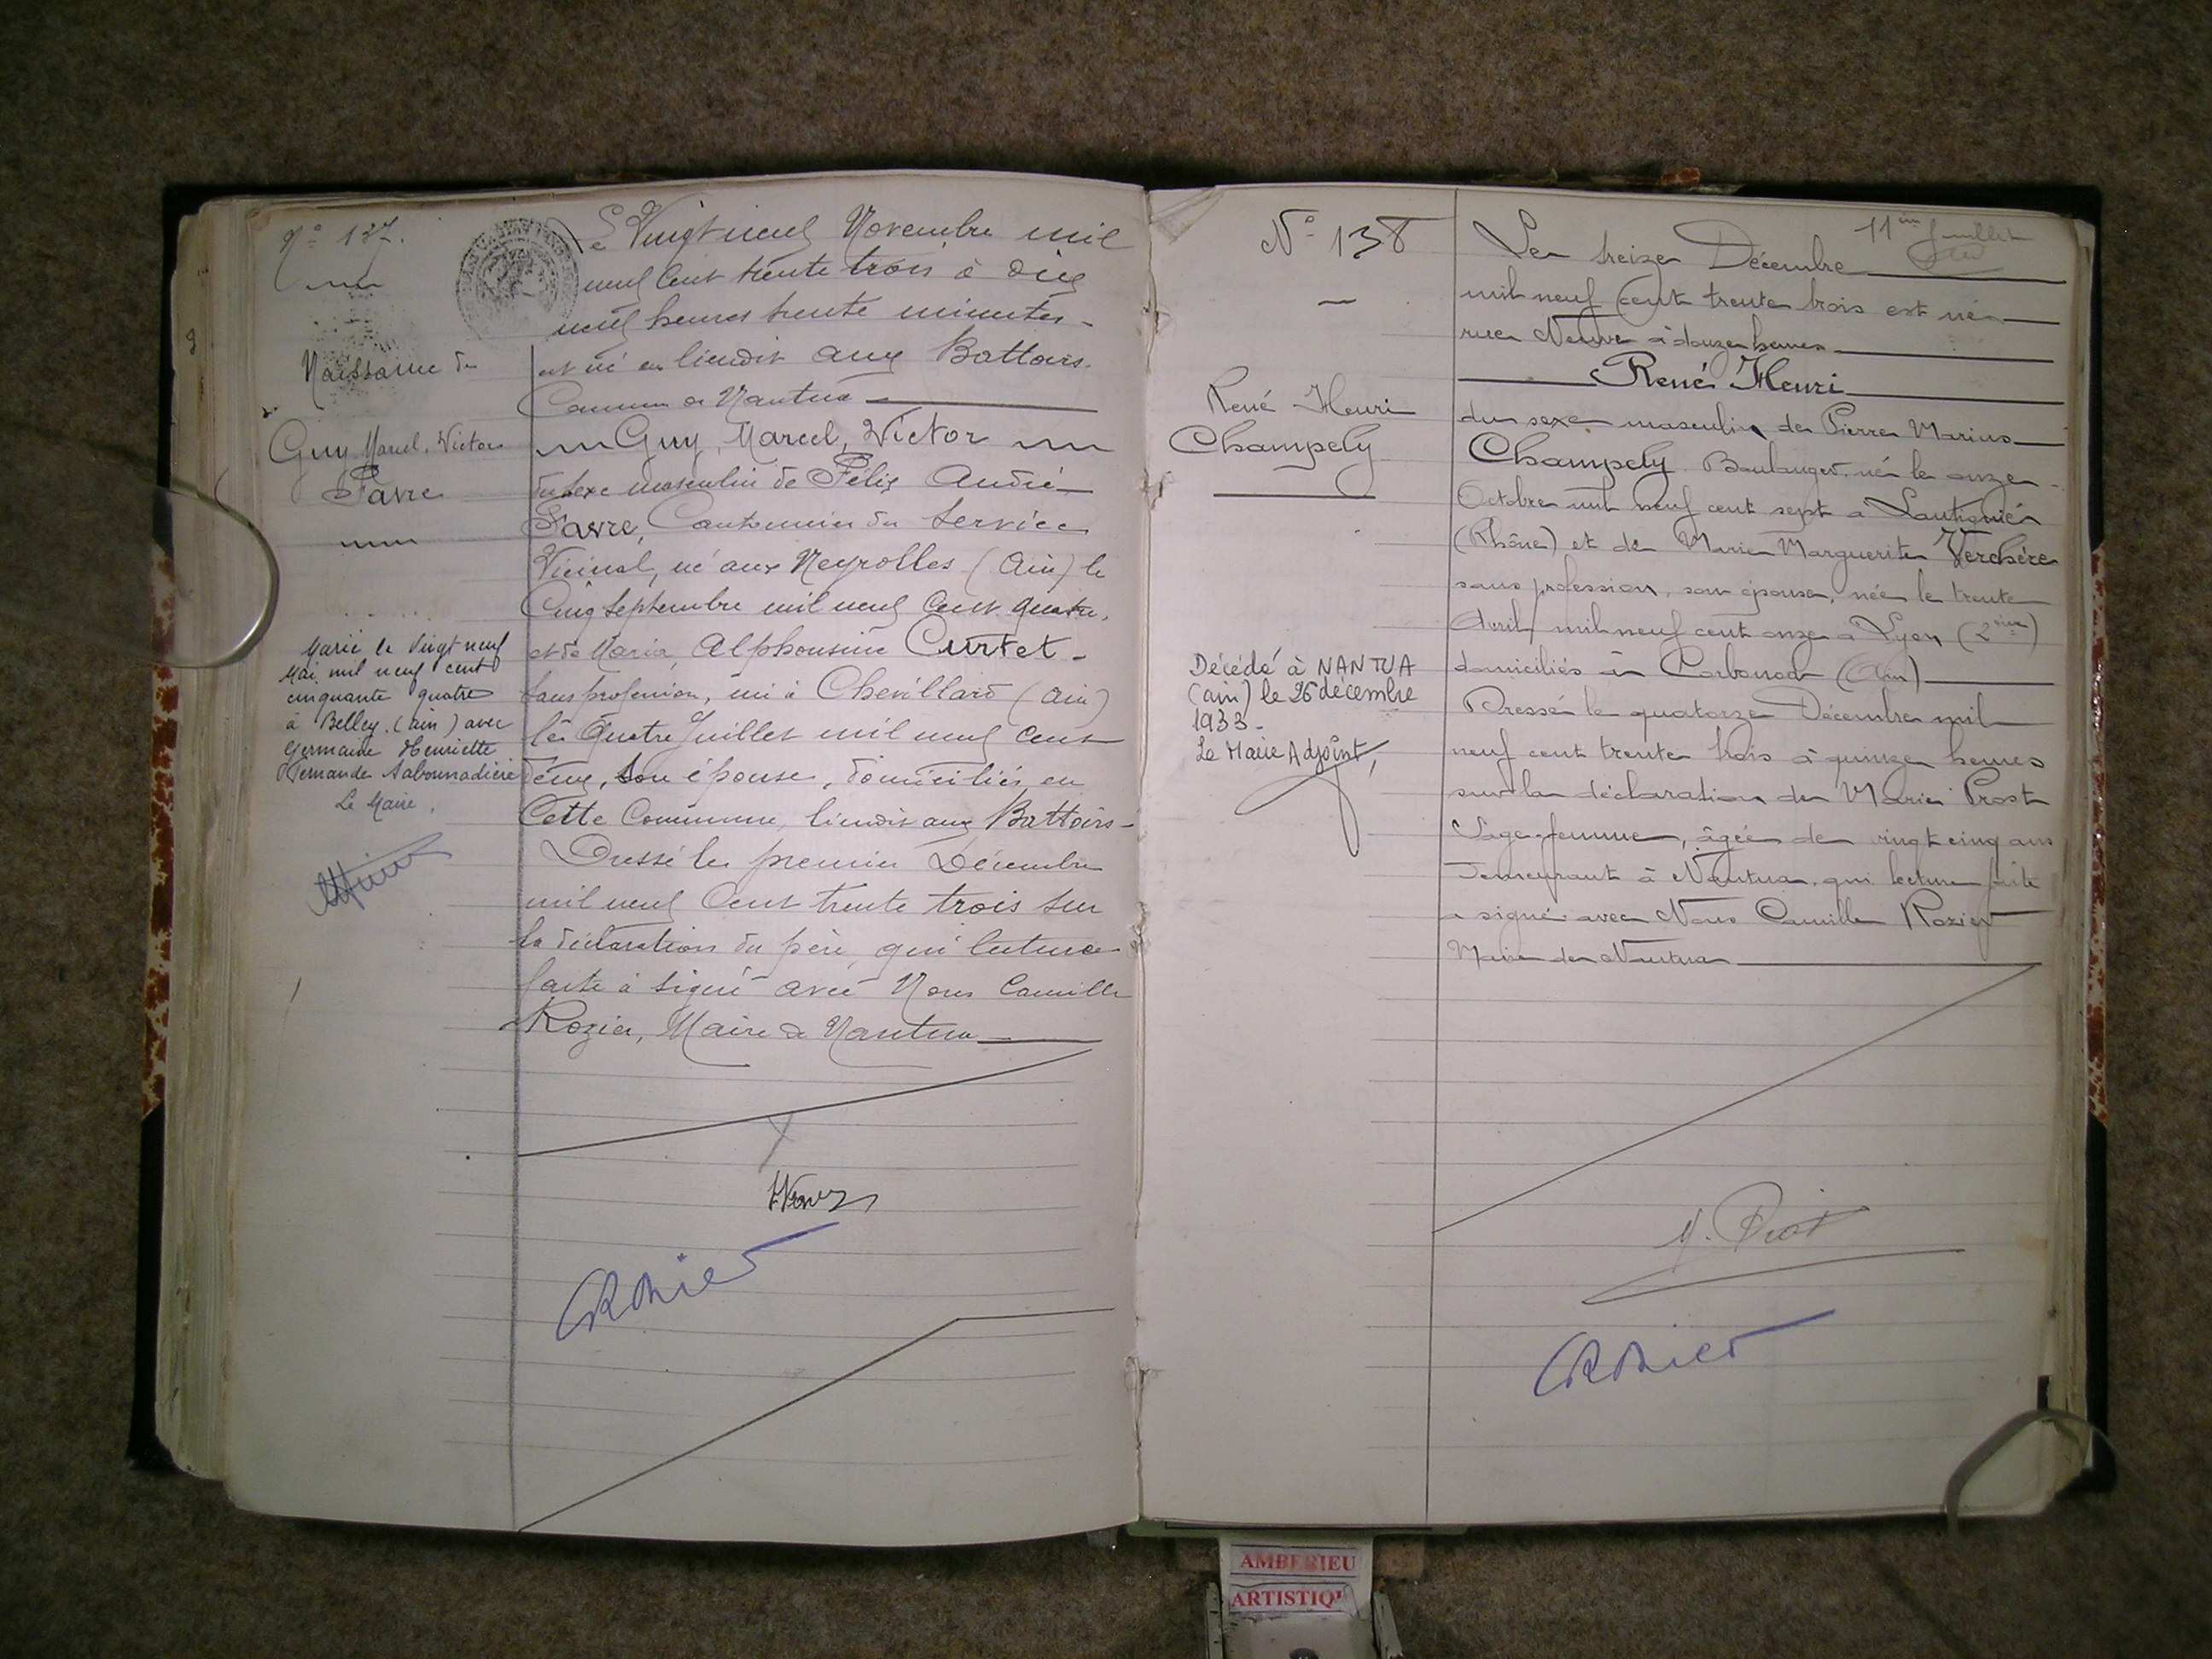 N° 137.
Naissance de
Guy Marcel, Victor
Favre
Marié le vingt neuf
Mai mil neuf cent
cinquante quatre
à Belley (ain) avec
Germaine Henriette
Fernande Sabonnadière
Le Maire,
Le Vingt neuf Novembre mil
neuf cent trente trois à dix
neuf heures trente minutes -
est né au lieudit aux Battoirs.
Commune de Nantua
Guy, Marcel, Victor
du sexe masculin de Félix André
Favre, Cantonnier du Service
Vicinal, né aux Neyrolles (Ain) le
Cinq Septembre mil neuf cent quatre,
et de Maria, Alphonsine Curtet -
sans profession, née à Chevillard (ain)
le Quatre Juillet mil neuf cent
deux, son épouse, domiciliés en
Cette Commune, lieudit aux Battoirs -
Dressé le premier Décembre
mil neuf Cent trente trois sur
la déclaration du père, qui lecture
faite à signé avec Nous Camille
Rozier, Maire de Nantua
N° 138
René Henri
Champely
Décédé à NANTUA
(ain) le 26 décembre
1933 -
Le Maire Adjoint,
11ème feuillet
Le treize Décembre
mil neuf cent trente trois est né
rue Neuve à douze heures
René Henri
du sexe masculin de Pierre Marius
Champely Boulanger, né le onze
Octobre mil neuf cent sept à Lantignié
(Rhône) et de Marie Marguerite Verchère
sans profession, son épouse, née le trente
Avril mil neuf cent onze à Lyon (2ème)
domiciliés à Corbonod (Ain)
Dressé le quatorze Décembre mil
neuf cent trente trois à quinze heures
sur la déclaration de Marie Prost
Sage-femme, âgée de vingt cinq ans
demeurant à Nantua, qui lecture faite
a signé avec Nous Camille Rozier
Maire de Nantua
M. Prost
CRozier
CRozier
AMBERIEU
ARTISTIQU